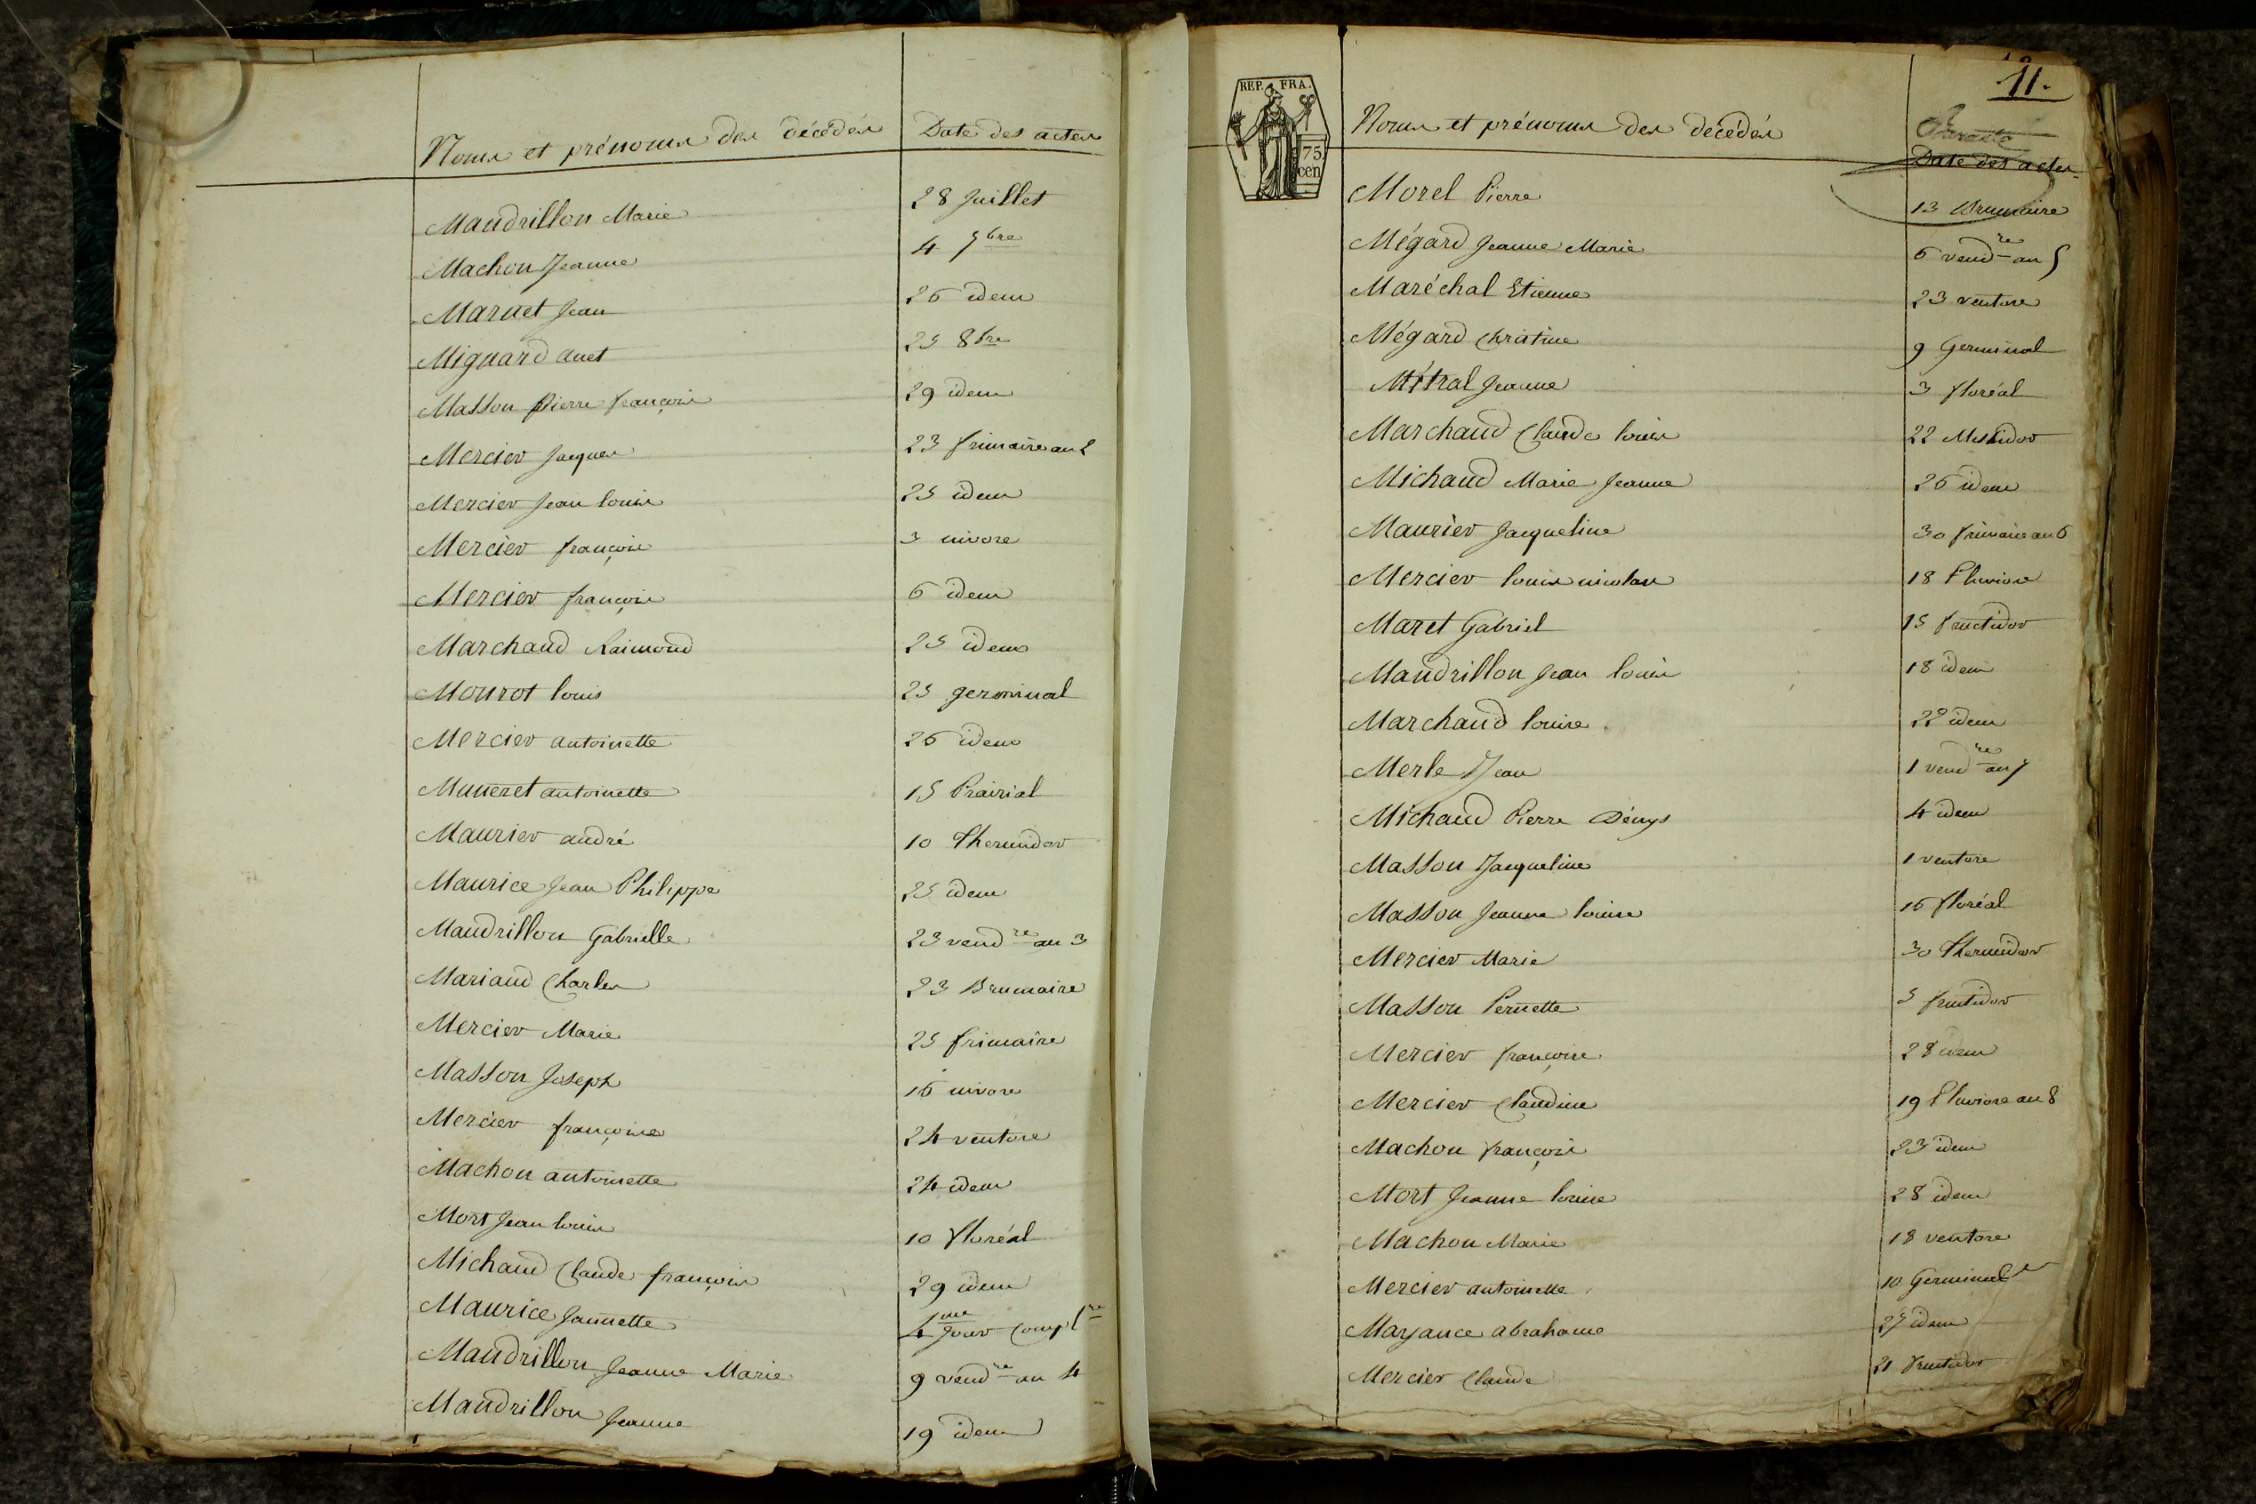 Noms et prénoms des décédés Date des actes
Mandrillon Marie 28 Juillet
Machon Jeanne 4 7bre
Maruet Jean 26 idem
Mignard anet 25 8bre
Masson pierre françois 29 idem
Mercier Jacques 23 frimaire an 2
Mercier Jean louis 25 idem
Mercier françois 3 nivose
Mercier françois 6 idem
Marchand Raimond 25 idem
Mourot louis 25 germinal
Mercier antoinette 26 idem
Muneret antoinette 15 Prairial
Maurier andré 10 Thermidor
Maurice Jean Philippe 25 idem
Mandrillon Gabrielle 23 vendre an 3
Mariand Charles 23 Brumaire
Mercier Marie 25 frimaire
Masson Joseph 16 nivose
Mercier françoise 24 ventose
Machon antoinette 24 idem
Mort Jean louis 10 floréal
Michaud Claude françois 29 idem
Maurice Jannette 4me jour complre
Mandrillon Jeanne Marie 9 vendre an 4
Mandrillon Jeanne 19 idem
11.
REP. FRA.
75 cen
Noms et prénoms des décédés Date des actes
Morel Pierre 13 Brumaire
Mégard Jeanne Marie 6 vendre an 5
Maréchal Etienne 23 ventose
Mégard Christine 9 Germinal
Métral Jeanne 3 floréal
Marchand Claude louis 22 Messidor
Michaud Marie Jeanne 26 idem
Maurier Jacqueline 30 frimaire an 6
Mercier louis nicolas 18 Pluviose
Maret Gabriel 15 fructidor
Mandrillon Jean louis 18 idem
Marchand louise 22 idem
Merle Jean 1 vendre an 7
Michaud Pierre Dénys 4 idem
Masson Jacqueline 1 ventose
Masson Jeanne louise 16 floréal
Mercier Marie 30 Thermidor
Masson Pernette 5 fructidor
Mercier françoise 28 idem
Mercier Claudine 19 Pluviose an 8
Machon françois 23 idem
Mort Jeanne louise 28 idem
Machon Marie 18 ventose
Mercier antoinette 10 Germinal
Mayance abrahame 27 idem
Mercier Claude 21 fructidor